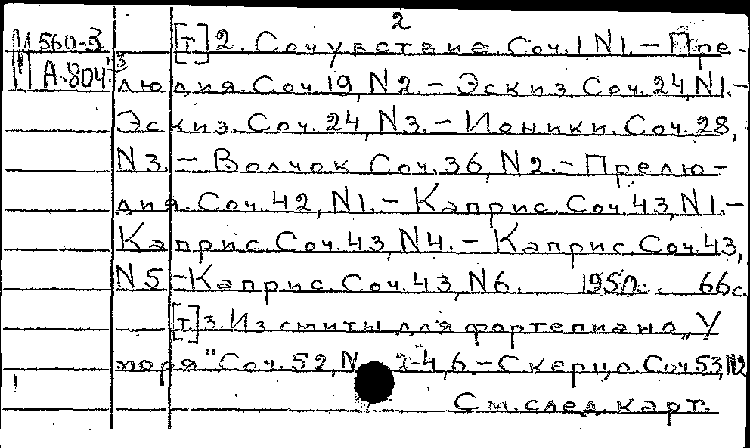 2
М 560-3 [т] 2. Сочувствие. Соч. 1 N1. – Пре-
А-804 людия Соч. 19, N2 – Эскиз. Соч. 24, N1. –
Эскиз. Соч. 24, N3. – Ионики. Соч. 28,
N3. – Волчок Соч. 36, N2. – Прелю-
дия. Соч. 42, N1. – Каприс. Соч. 43, N1. –
Каприс. Соч. 43, N4. – Каприс. Соч. 43,
N5 – Каприс. Соч. 43, N6. 1950. 66с.
[т] 3. Из сюиты для фортепиано „У
моря" Соч. 52, N 2-4, 6. – Скерцо. Соч. 53, N2
См. след. карт.